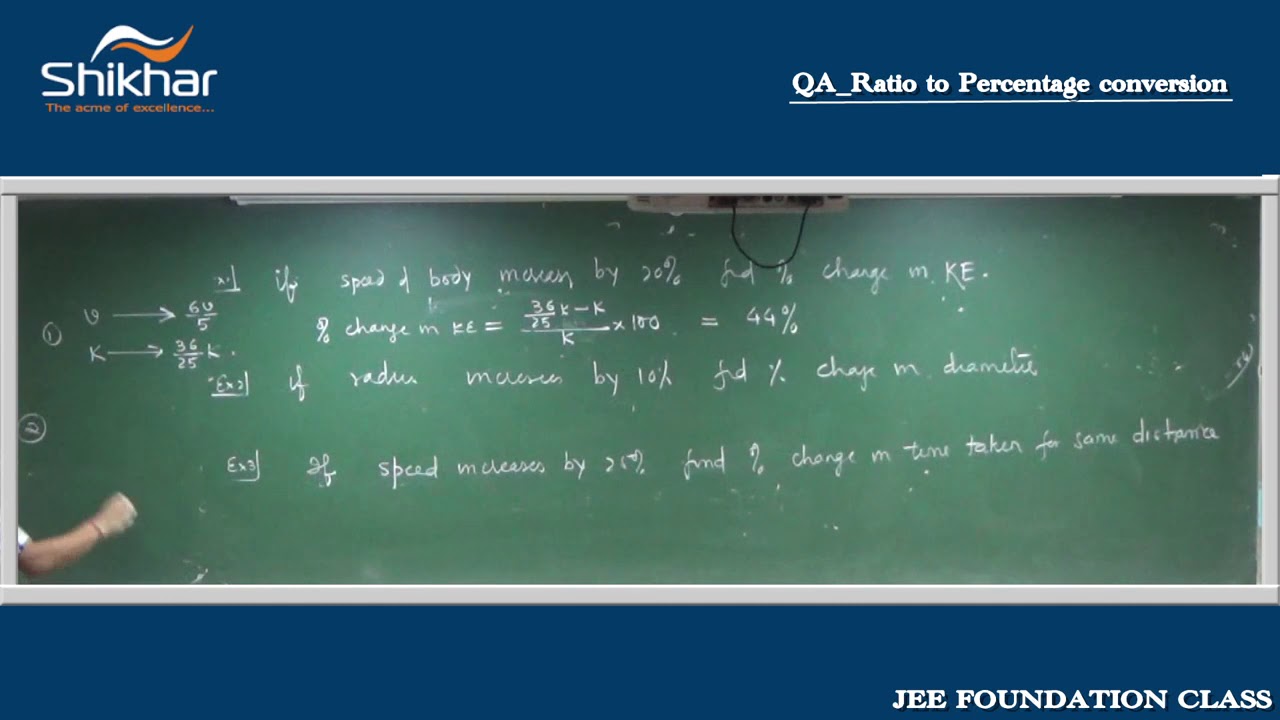 Shikhar
The acme of excellence...
QA_Ratio to Percentage conversion
x1] if speed of body increases by 20% find % change in KE.
① v → 6v/5
% change in KE = (36/25 K - K)/K × 100 = 44%
K → 36/25 K.
Ex2] if radius increases by 10% find % change in diameter
②
Ex3] If speed increases by % find % change in time taken for same distance
JEE FOUNDATION CLASS